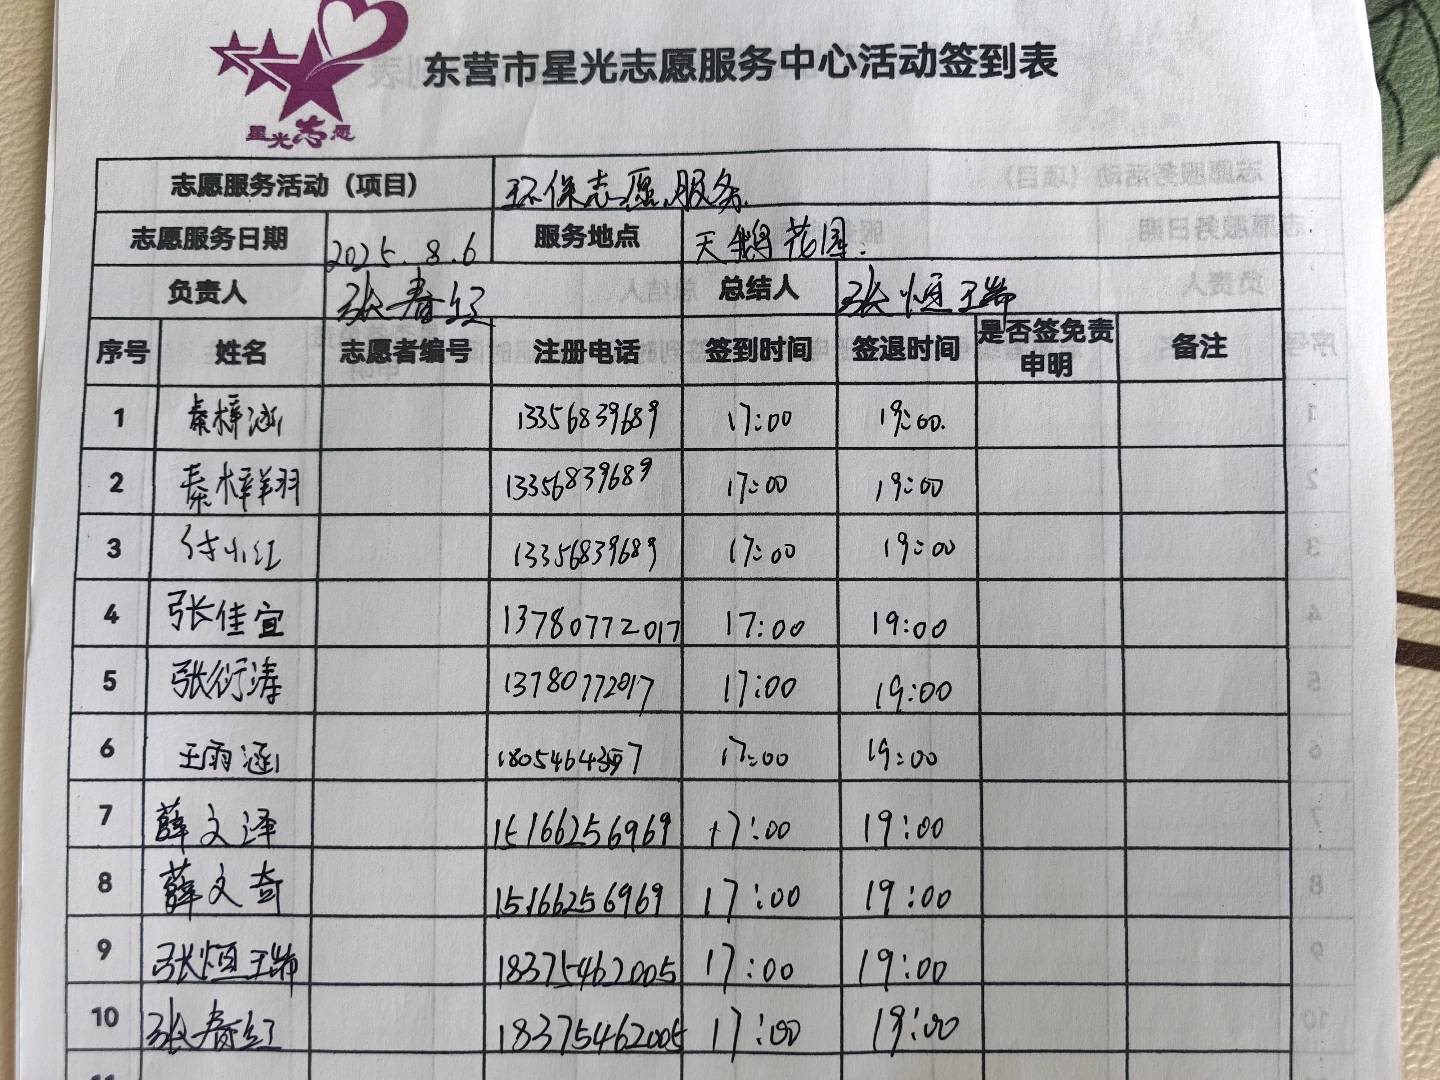 东营市星光志愿服务中心活动签到表
星光志愿
志愿服务活动（项目） 环保志愿服务
志愿服务日期 2025.8.6 服务地点 天鹅花园.
负责人 张春红 总结人 张烜瑞
序号 姓名 志愿者编号 注册电话 签到时间 签退时间 是否签免责申明 备注
1 秦梓涵 13356839689 17:00 19:00.
2 秦梓翔 13356839689 17:00 19:00
3 付小红 13356839689 17:00 19:00
4 张佳宜 13780772017 17:00 19:00
5 张衍涛 13780772017 17:00 19:00
6 王雨涵 17:00 19:00
7 薛文泽 15166256969 17:00 19:00
8 薛文奇 15166256969 17:00 19:00
9 张烜瑞 18375462005 17:00 19:00
10 张春红 18375462005 17:00 19:00